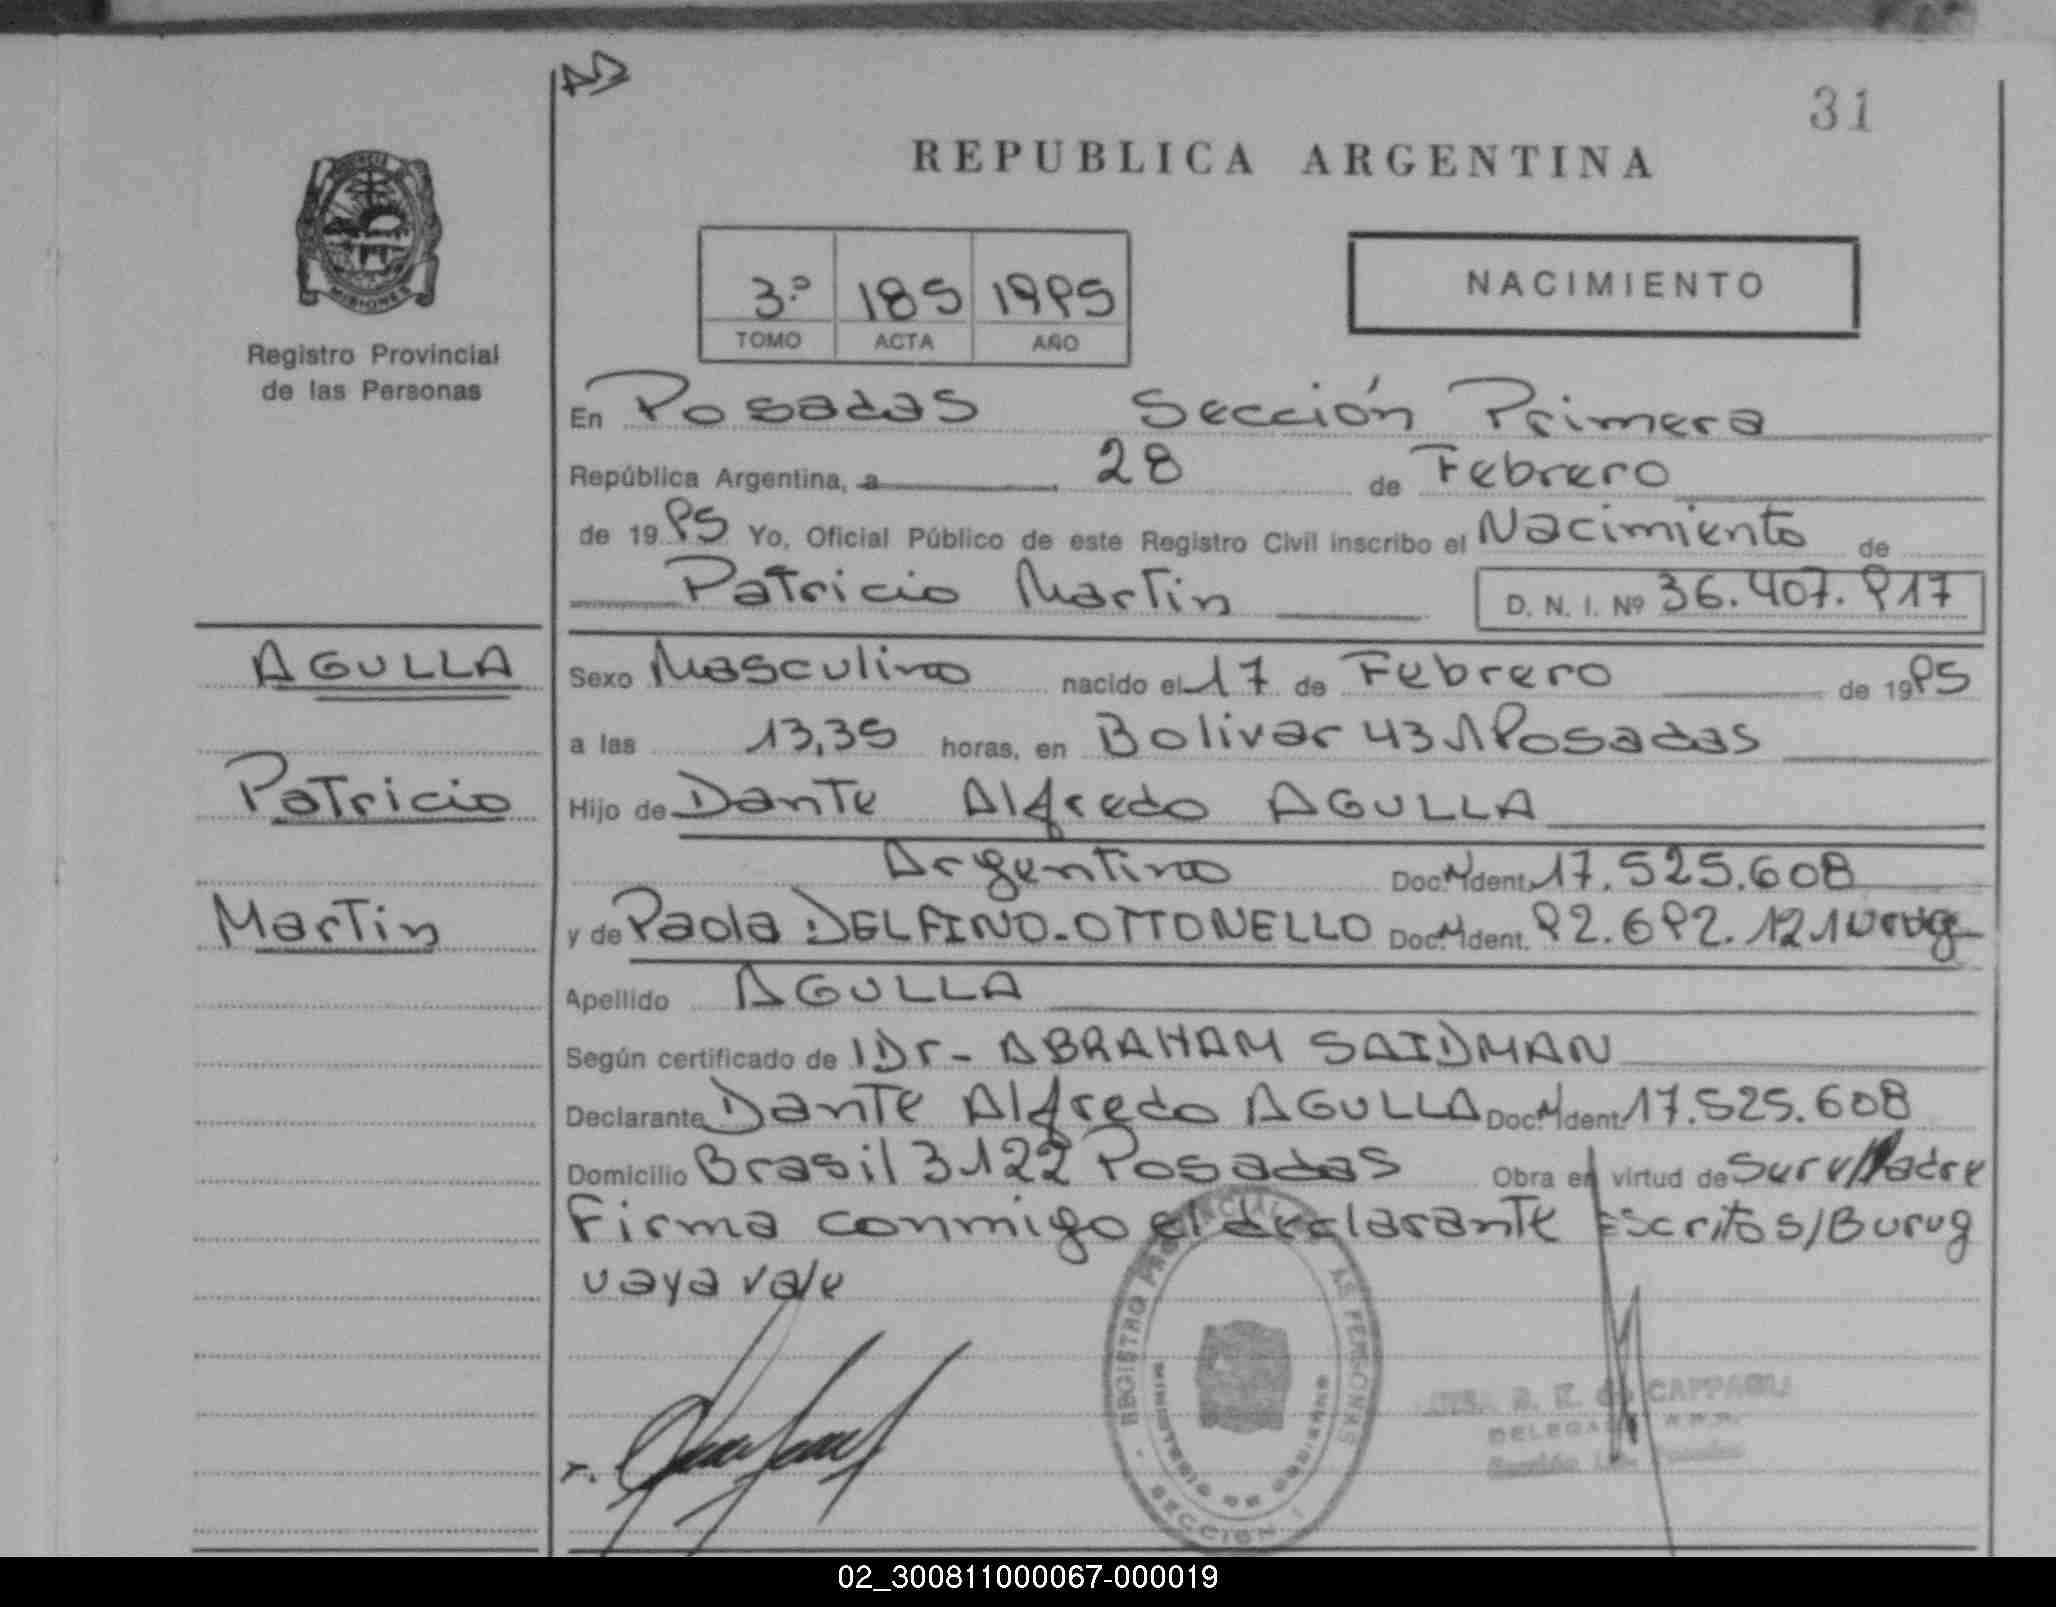 31
REPUBLICA ARGENTINA
MISIONES
3.º 185 1995
TOMO ACTA AÑO
NACIMIENTO
Registro Provincial
de las Personas
En Posadas Sección Primera
República Argentina, a 28 de Febrero
de 1995 Yo, Oficial Público de este Registro Civil inscribo el Nacimiento de
Patricio Martin D. N. I. Nº 36.407.917
AGULLA
Patricio
Martin
Sexo Masculino nacido el 17 de Febrero de 1995
a las 13,35 horas, en Bolivar 431 Posadas
Hijo de Dante Alfredo AGULLA
Argentino Doc. Ident. 17.525.608
y de Paola DELFINO-OTTONELLO Doc. Ident. 92.692.121 Urug
Apellido AGULLA
Según certificado de Dr- ABRAHAM SAIDMAN
Declarante Dante Alfredo AGULLA Doc. Ident. 17.525.608
Domicilio Brasil 3122 Posadas Obra en virtud de
Firma conmigo el declarante Escrito s/B urug
uaya vale
REGISTRO PROVINCIAL DE LAS PERSONAS
MINISTERIO DE GOBIERNO
SECCION I
02_300811000067-000019